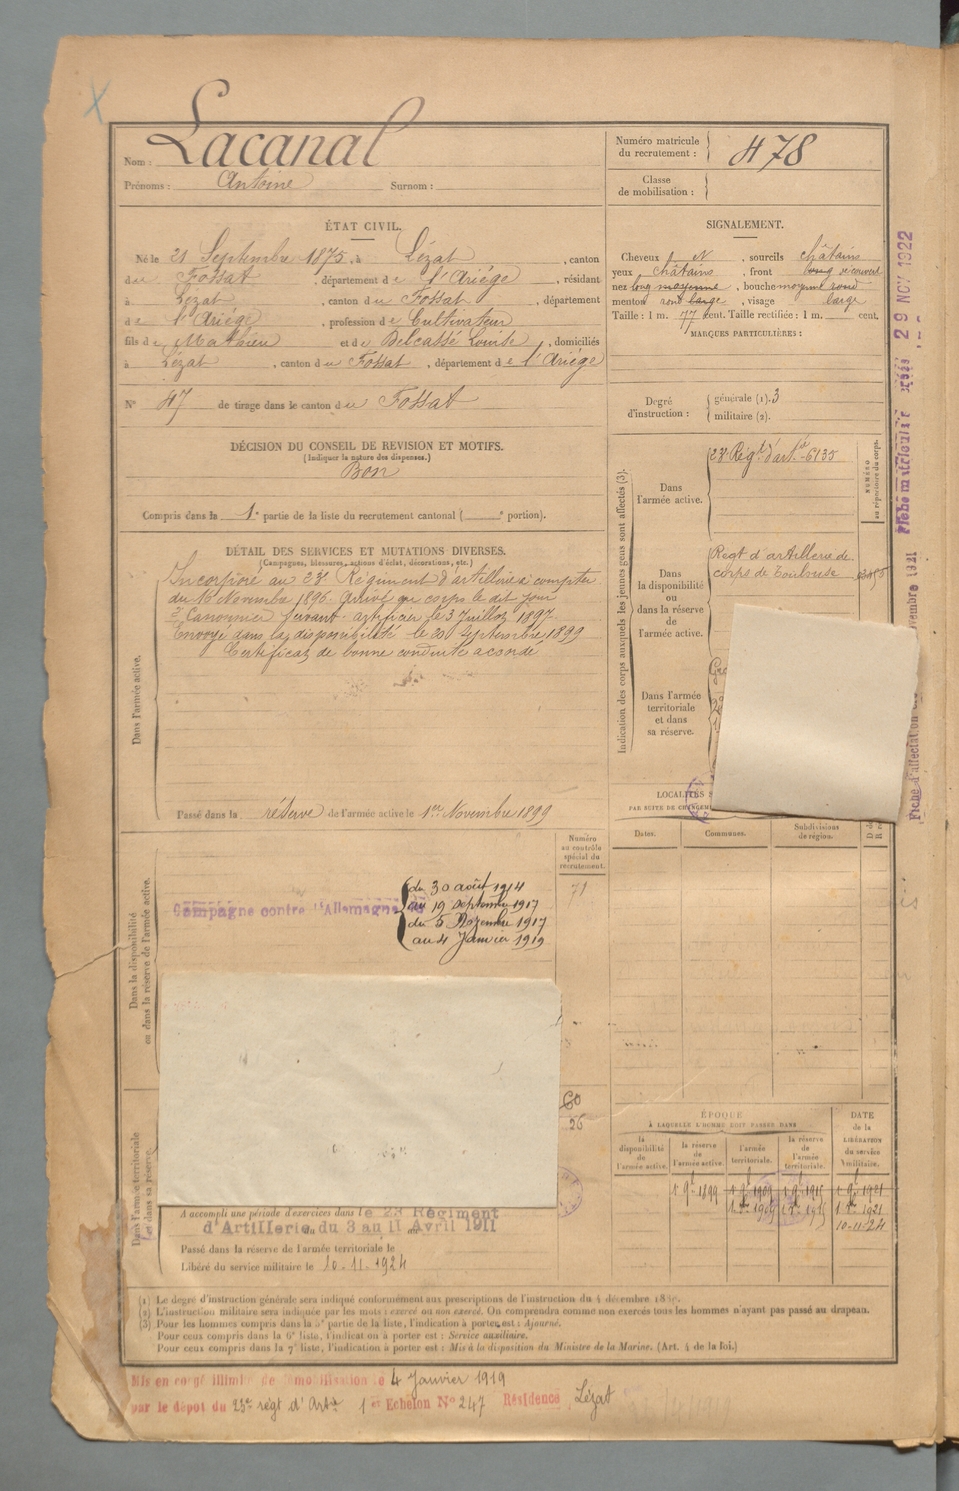 Nom : Lacanal
Prénoms : Antoine Surnom :
Numéro matricule du recrutement : 478
Classe de mobilisation :
ÉTAT CIVIL.
Né le 21 Septembre 1875, à Lézat, canton
du Fossat, département de l'Ariége, résidant
à Lézat, canton du Fossat, département
de l'Ariége, profession de Cultivateur
fils de Mathieu et de Delcassé Louise, domiciliés
à Lézat, canton du Fossat, département de l'Ariége
N° 47 de tirage dans le canton du Fossat
SIGNALEMENT.
Cheveux N, sourcils châtains
yeux châtains, front long
nez long moyenne, bouche moyenne rond
menton rond large, visage large
Taille : 1 m. 77 cent. Taille rectifiée : 1 m. cent.
MARQUES PARTICULIÈRES :
Degré d'instruction : générale (1). 3
militaire (2).
DÉCISION DU CONSEIL DE REVISION ET MOTIFS.
(Indiquer la nature des dispenses.)
Bon
Compris dans la 1e partie de la liste du recrutement cantonal ( e portion).
DÉTAIL DES SERVICES ET MUTATIONS DIVERSES.
(Campagnes, blessures, actions d'éclat, décorations, etc.)
Dans l'armée active.
Incorporé au 23e Régiment d'artillerie à compter
du 16 Novembre 1896. Arrivé au corps le dit jour
2e Canonnier servant artificier le 3 Juillet 1897
Envoyé dans la disponibilité le 20 Septembre 1899
Certificat de bonne conduite accordé
Passé dans la réserve de l'armée active le 1er Novembre 1899
Indication des corps auxquels les jeunes gens sont affectés (3).
NUMÉRO au répertoire du corps.
Dans l'armée active.
23e Régt d'arte 6135
Dans la disponibilité ou dans la réserve de l'armée active.
Regt d'artillerie de
corps de Toulouse
Dans l'armée territoriale et dans sa réserve.
LOCALITÉS
PAR SUITE DE CHANGEM
Dates. Communes. Subdivisions de région.
Fiche matriculaire 29 NOV 1922
Fiche d'affectation
Dans la disponibilité ou dans la réserve de l'armée active.
Numéro au contrôle spécial du recrutement.
71
Campagne contre l'Allemagne
du 30 août 1914
au 19 septembre 1917
du 5 Novembre 1917
au 4 Janvier 1919
60
26
Dans l'armée territoriale et dans sa réserve.
A accompli une période d'exercices dans le 23 Régiment
d'Artillerie du 3 au 11 Avril 1911
Passé dans la réserve de l'armée territoriale le
Libéré du service militaire le 10-11-1924
ÉPOQUE
À LAQUELLE L'HOMME DOIT PASSER DANS
DATE de la LIBÉRATION du service militaire.
la disponibilité de l'armée active. la réserve de l'armée active. l'armée territoriale. la réserve de l'armée territoriale.
1 9b 1899 1 9b 1909 1 9b 1915 1 9b 1921
1909 1915 1921
10-11-24
(1) Le degré d'instruction générale sera indiqué conformément aux prescriptions de l'instruction du 4 décembre
(2) L'instruction militaire sera indiquée par les mots : exercé ou non exercé. On comprendra comme non exercés tous les hommes n'ayant pas passé au drapeau.
(3) Pour les hommes compris dans la 5e partie de la liste, l'indication à porter est : Ajourné.
Pour ceux compris dans la 6e liste, l'indication à porter est : Service auxiliaire.
Pour ceux compris dans la 7e liste, l'indication à porter est : Mis à la disposition du Ministre de la Marine. (Art. 4 de la loi.)
Mis en congé illimité de démobilisation le 4 Janvier 1919
par le dépôt du 23e régt d'Arte 1er Echelon N° 247 Résidence Lézat